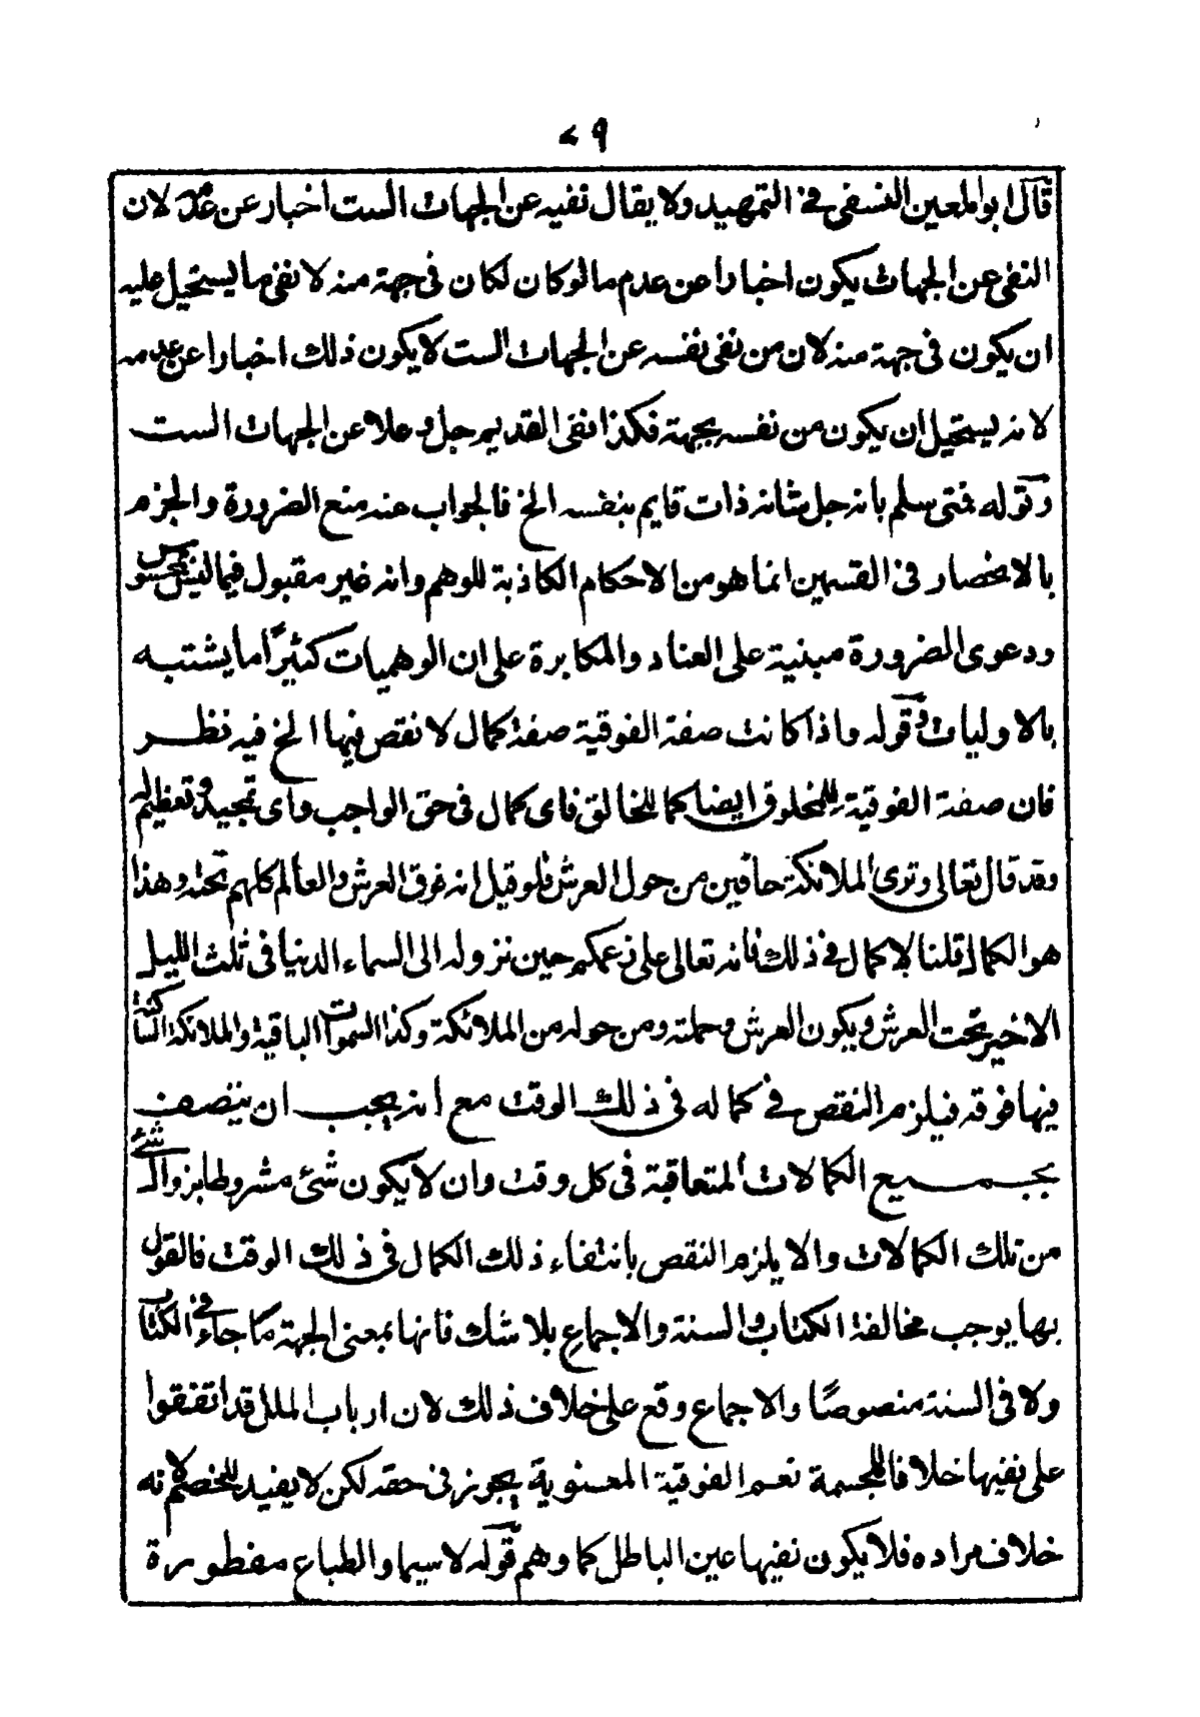 ٧٩
قال ابو المعين النسفى فى التمهيد ولا يقال نفيه عن الجهات الست اخبار عن عدمه لان
النفى عن الجهات يكون اخبارا عن عدم ما لو كان لكان فى جهة منه لا نفى ما يستحيل عليه
ان يكون فى جهة منه لان من نفى نفسه عن الجهات الست لا يكون ذلك اخبارا عن عدمه
لانه يستحيل ان يكون من نفسه بجهة فكذا نفى القديم جل وعلا عن الجهات الست
وقوله فمتى سلم بانه جل شانه ذات قايم بنفسه الخ فالجواب عنه منع الضرورة والجزم
بالانحصار فى القسمين انما هو من الاحكام الكاذبة للوهم وانه غير مقبول فيما ليس بمحسوس
ودعوى الضرورة مبنية على العناد والمكابرة على ان الوهميات كثيرًا ما يشتبه
بالاوليات وقوله واذا كانت صفة الفوقية صفة كمال لا نقص فيها الخ فيه نظر
فان صفة الفوقية للمخلوق ايضا كما للخالق فاى كمال فى حق الواجب واى تمجيد وتعظيم له
وقد قال تعالى وترى الملائكة حافين من حول العرش فلو قيل انه فوق العرش والعالم كلهم تحته وهذا
هو الكمال قلنا لا كمال فى ذلك فانه تعالى على زعمكم حين نزوله الى السماء الدنيا فى ثلث الليل
الاخير تحت العرش ويكون العرش وحملته ومن حوله من الملائكة وكذا السموات الباقية والملائكة الساكنة
فيها فوقه فيلزم النقص فى كماله فى ذلك الوقت مع انه يجب ان يتصف
بجميع الكمالات المتعاقبة فى كل وقت وان لا يكون شئ مشروطا بزوال شئ
من تلك الكمالات والا يلزم النقص بانتفاء ذلك الكمال فى ذلك الوقت فالقول
بها يوجب مخالفة الكتاب والسنة والاجماع بلا شك فانها بمعنى الجهة ما جاء فى الكتاب
ولا فى السنة منصوصًا والاجماع وقع على خلاف ذلك لان ارباب الملل قد اتفقوا
على نفيها خلافا للمجسمة نعم الفوقية المعنوية يجوز فى حقه لكن لا يفيد للخصم لانه
خلاف مراده فلا يكون نفيها عين الباطل كما وهم قوله لا سيما والطباع مفطورة